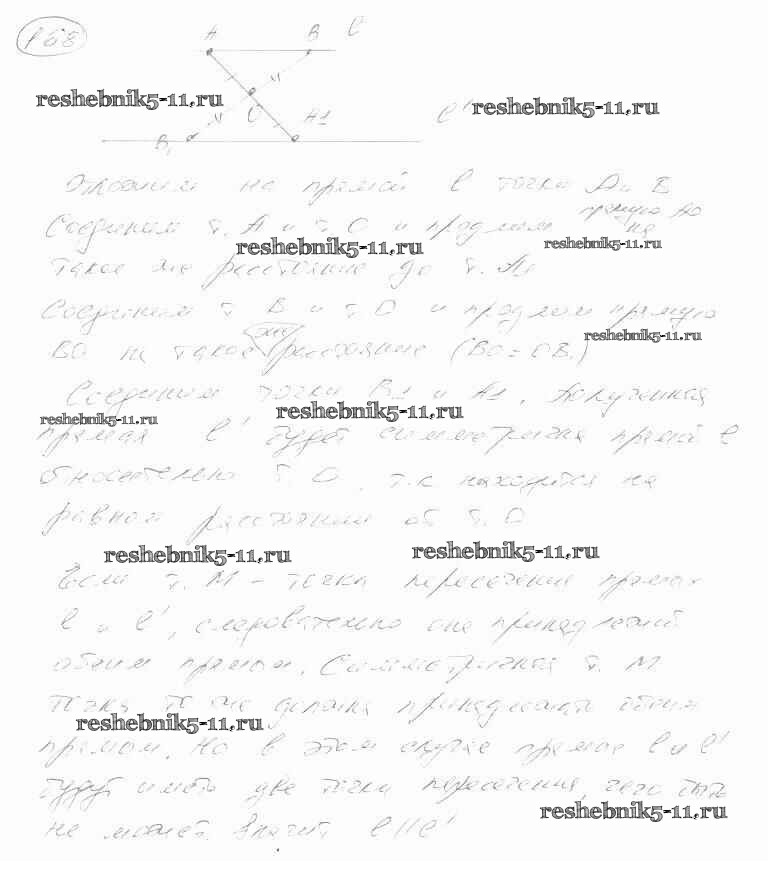 168
A B l
reshebnik5-11,ru
O A1 l' reshebnik5-11,ru
B1
на прямой l точки A и B
прямую AO
Соединим т. A и т. O и продлим на
reshebnik5-11,ru
reshebnik5-11,ru
такое же расстояние до т. A1
Соединим т. B и т. O и продлим прямую
же
reshebnik5-11,ru
BO на такое расстояние (BO = OB1)
Соединим точки B1 и A1. Полученная
reshebnik5-11,ru
reshebnik5-11,ru
прямая l' будет симметрична прямой l
относительно т. O, т.к находится на
равном расстоянии от т. O
reshebnik5-11,ru reshebnik5-11,ru
Если т. M - точка пересечения прямых
l и l', следовательно она принадлежит
обеим прямым. Симметричная т. M
точка то же должна принадлежать обеим
reshebnik5-11,ru
прямым. Но в этом случае прямые l и l'
будут иметь две точки пересечения, чего быть
reshebnik5-11,ru
не может. Значит l || l'